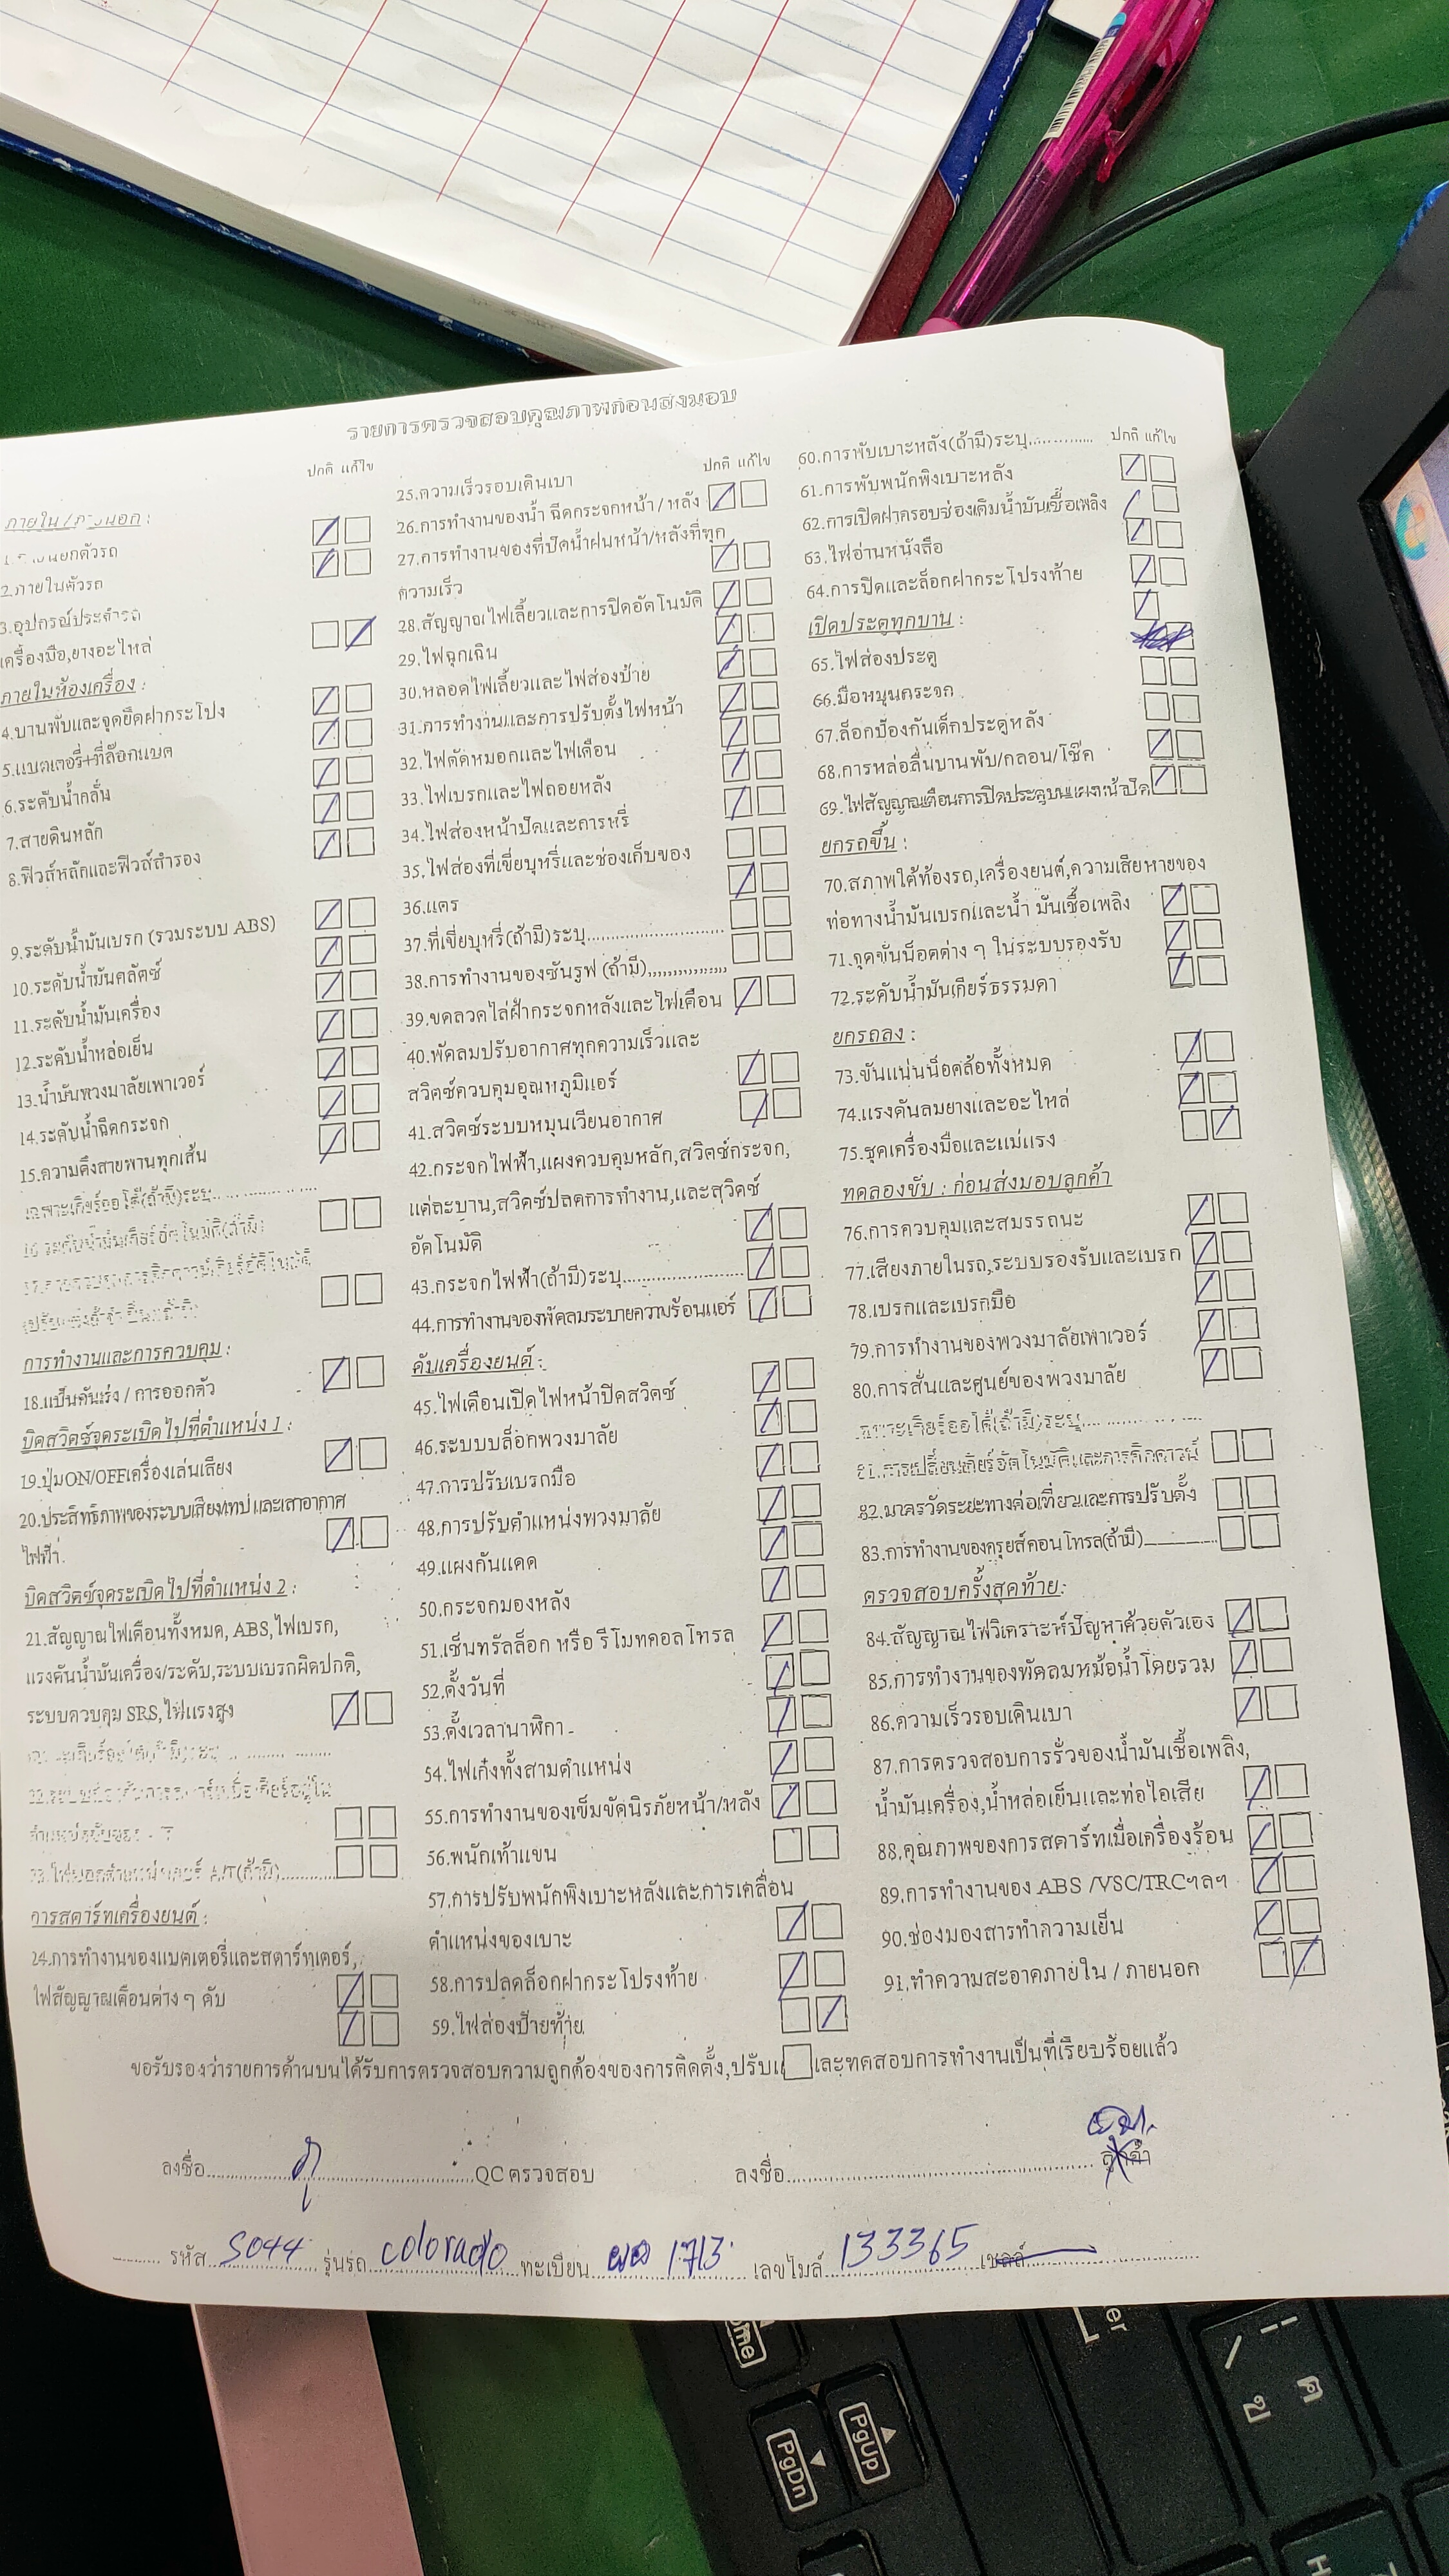 รายการตรวจสอบคุณภาพก่อนส่งมอบ
ปกติ แก้ไข
ภายใน / ภายนอก :
2.ภายในตัวรถ
3.อุปกรณ์ประจำรถ
เครื่องมือ,ยางอะไหล่
ภายในห้องเครื่อง :
4.บานพับและจุดยึดฝากระโปง
5.แบตเตอรี่+ที่ล๊อกแบต
6.ระดับน้ำกลั่น
7.สายดินหลัก
8.ฟิวส์หลักและฟิวส์สำรอง
9.ระดับน้ำมันเบรก (รวมระบบ ABS)
10.ระดับน้ำมันคลัตซ์
11.ระดับน้ำมันเครื่อง
12.ระดับน้ำหล่อเย็น
13.น้ำมันพวงมาลัยเพาเวอร์
14.ระดับน้ำฉีดกระจก
15.ความตึงสายพานทุกเส้น
เฉพาะเกียร์ออโต้(ถ้ามี)ระบุ
การทำงานและการควบคุม :
18.แป้นคันเร่ง / การออกตัว
บิดสวิตซ์จุดระเบิดไปที่ตำแหน่ง 1 :
19.ปุ่มON/OFFเครื่องเล่นเสียง
20.ประสิทธิภาพของระบบเสียงเทปและเสาอากาศ
ไฟฟ้า
บิดสวิตซ์จุดระเบิดไปที่ตำแหน่ง 2 :
21.สัญญาณไฟเตือนทั้งหมด, ABS,ไฟเบรก,
แรงดันน้ำมันเครื่อง/ระดับ,ระบบเบรกผิดปกติ,
ระบบควบคุม SRS,ไฟแรงสูง
A/T(ถ้ามี)
การสตาร์ทเครื่องยนต์ :
24.การทำงานของแบตเตอรี่และสตาร์ทเตอร์,
ไฟสัญญาณเตือนต่าง ๆ ดับ
ปกติ แก้ไข
25.ความเร็วรอบเดินเบา
26.การทำงานของน้ำ ฉีดกระจกหน้า / หลัง
27.การทำงานของที่ปัดน้ำฝนหน้า/หลังที่ทุก
ความเร็ว
28.สัญญาณไฟเลี้ยวและการปิดอัตโนมัติ
29.ไฟฉุกเฉิน
30.หลอดไฟเลี้ยวและไฟส่องป้าย
31.การทำงานและการปรับตั้งไฟหน้า
32.ไฟตัดหมอกและไฟเตือน
33.ไฟเบรกและไฟถอยหลัง
34.ไฟส่องหน้าปัดและการหรี่
35.ไฟส่องที่เขี่ยบุหรี่และช่องเก็บของ
36.แตร
37.ที่เขี่ยบุหรี่(ถ้ามี)ระบุ
38.การทำงานของซันรูฟ (ถ้ามี)
39.ขดลวดไล่ฝ้ากระจกหลังและไฟเตือน
40.พัดลมปรับอากาศทุกความเร็วและ
สวิตซ์ควบคุมอุณหภูมิแอร์
41.สวิตซ์ระบบหมุนเวียนอากาศ
42.กระจกไฟฟ้า,แผงควบคุมหลัก,สวิตซ์กระจก,
แต่ละบาน,สวิตซ์ปลดการทำงาน,และสวิตซ์
อัตโนมัติ
43.กระจกไฟฟ้า(ถ้ามี)ระบุ
44.การทำงานของพัดลมระบายความร้อนแอร์
ดับเครื่องยนต์ :
45.ไฟเตือนเปิดไฟหน้าปิดสวิตซ์
46.ระบบบล็อกพวงมาลัย
47.การปรับเบรกมือ
48.การปรับตำแหน่งพวงมาลัย
49.แผงกันแดด
50.กระจกมองหลัง
51.เซ็นทรัลล็อก หรือ รีโมทคอลโทรล
52.ตั้งวันที่
53.ตั้งเวลานาฬิกา
54.ไฟเก๋งทั้งสามตำแหน่ง
55.การทำงานของเข็มขัดนิรภัยหน้า/หลัง
56.พนักเท้าแขน
57.การปรับพนักพิงเบาะหลังและการเคลื่อน
ตำแหน่งของเบาะ
58.การปลดล็อกฝากระโปรงท้าย
59.ไฟส่องป้ายท้าย
60.การพับเบาะหลัง(ถ้ามี)ระบุ
ปกติ แก้ไข
61.การพับพนักพิงเบาะหลัง
62.การเปิดฝาครอบช่องเติมน้ำมันเชื้อเพลิง
63.ไฟอ่านหนังสือ
64.การปิดและล็อกฝากระโปรงท้าย
เปิดประตูทุกบาน :
65.ไฟส่องประตู
66.มือหมุนกระจก
67.ล็อกป้องกันเด็กประตูหลัง
68.การหล่อลื่นบานพับ/กลอน/โช๊ค
69.ไฟสัญญาณเตือนการปิดประตูบนแผงหน้าปัด
ยกรถขึ้น :
70.สภาพใต้ท้องรถ,เครื่องยนต์,ความเสียหายของ
ท่อทางน้ำมันเบรกและน้ำ มันเชื้อเพลิง
71.จุดขันน็อตต่าง ๆ ในระบบรองรับ
72.ระดับน้ำมันเกียร์ธรรมดา
ยกรถลง :
73.ขันแน่นน็อตล้อทั้งหมด
74.แรงดันลมยางและอะไหล่
75.ชุดเครื่องมือและแม่แรง
ทดลองขับ : ก่อนส่งมอบลูกค้า
76.การควบคุมและสมรรถนะ
77.เสียงภายในรถ,ระบบรองรับและเบรก
78.เบรกและเบรกมือ
79.การทำงานของพวงมาลัยเพาเวอร์
80.การสั่นและศูนย์ของพวงมาลัย
เฉพาะเกียร์ออโต้(ถ้ามี)ระบุ
81.การเปลี่ยนเกียร์อัตโนมัติและการคิกดาวน์
82.มาตรวัดระยะทางต่อเที่ยวและการปรับตั้ง
83.การทำงานของครูยส์คอนโทรล(ถ้ามี)
ตรวจสอบครั้งสุดท้าย:
84.สัญญาณไฟวิเคราะห์ปัญหาด้วยตัวเอง
85.การทำงานของพัดลมหม้อน้ำโดยรวม
86.ความเร็วรอบเดินเบา
87.การตรวจสอบการรั่วของน้ำมันเชื้อเพลิง,
น้ำมันเครื่อง,น้ำหล่อเย็นและท่อไอเสีย
88.คุณภาพของการสตาร์ทเมื่อเครื่องร้อน
89.การทำงานของ ABS /VSC/TRCฯลฯ
90.ช่องมองสารทำความเย็น
91.ทำความสะอาดภายใน / ภายนอก
ขอรับรองว่ารายการด้านบนได้รับการตรวจสอบความถูกต้องของการติดตั้ง,ปรับแ และทดสอบการทำงานเป็นที่เรียบร้อยแล้ว
ลงชื่อ QC ตรวจสอบ ลงชื่อ ลูกค้า
รหัส S044 รุ่นรถ colorado ทะเบียน ผต 1713 เลขไมล์ 133365
PgUp
PgDn